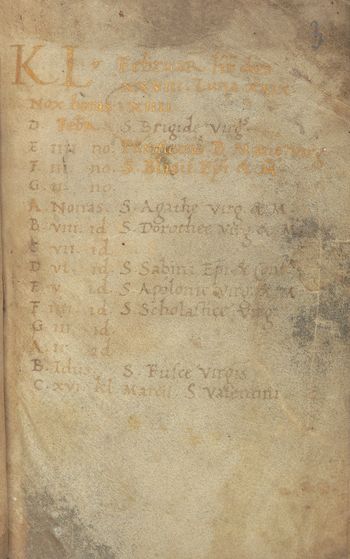 3
KL Februar h't dies
XXVIII. Luna XXIX
Nox horas XIIII
D. Febr. S. Brigide Virg.
E IIII no. Purificatio B. Marie Virg.
F III no. S. Blasii Epi & M
G II no.
A. Nonas. S. Agathe Virg. & M
B VIII id S. Dorothee Virg & M
C VII id
D VI id S. Sabini Epi & Conf
E V id S. Apolonie Virg & M
F IIII id S. Scholastice Virg
G III id
A II id
B. Idus S. Fusce Virgis
C. XVI kl Marcii S Valentini